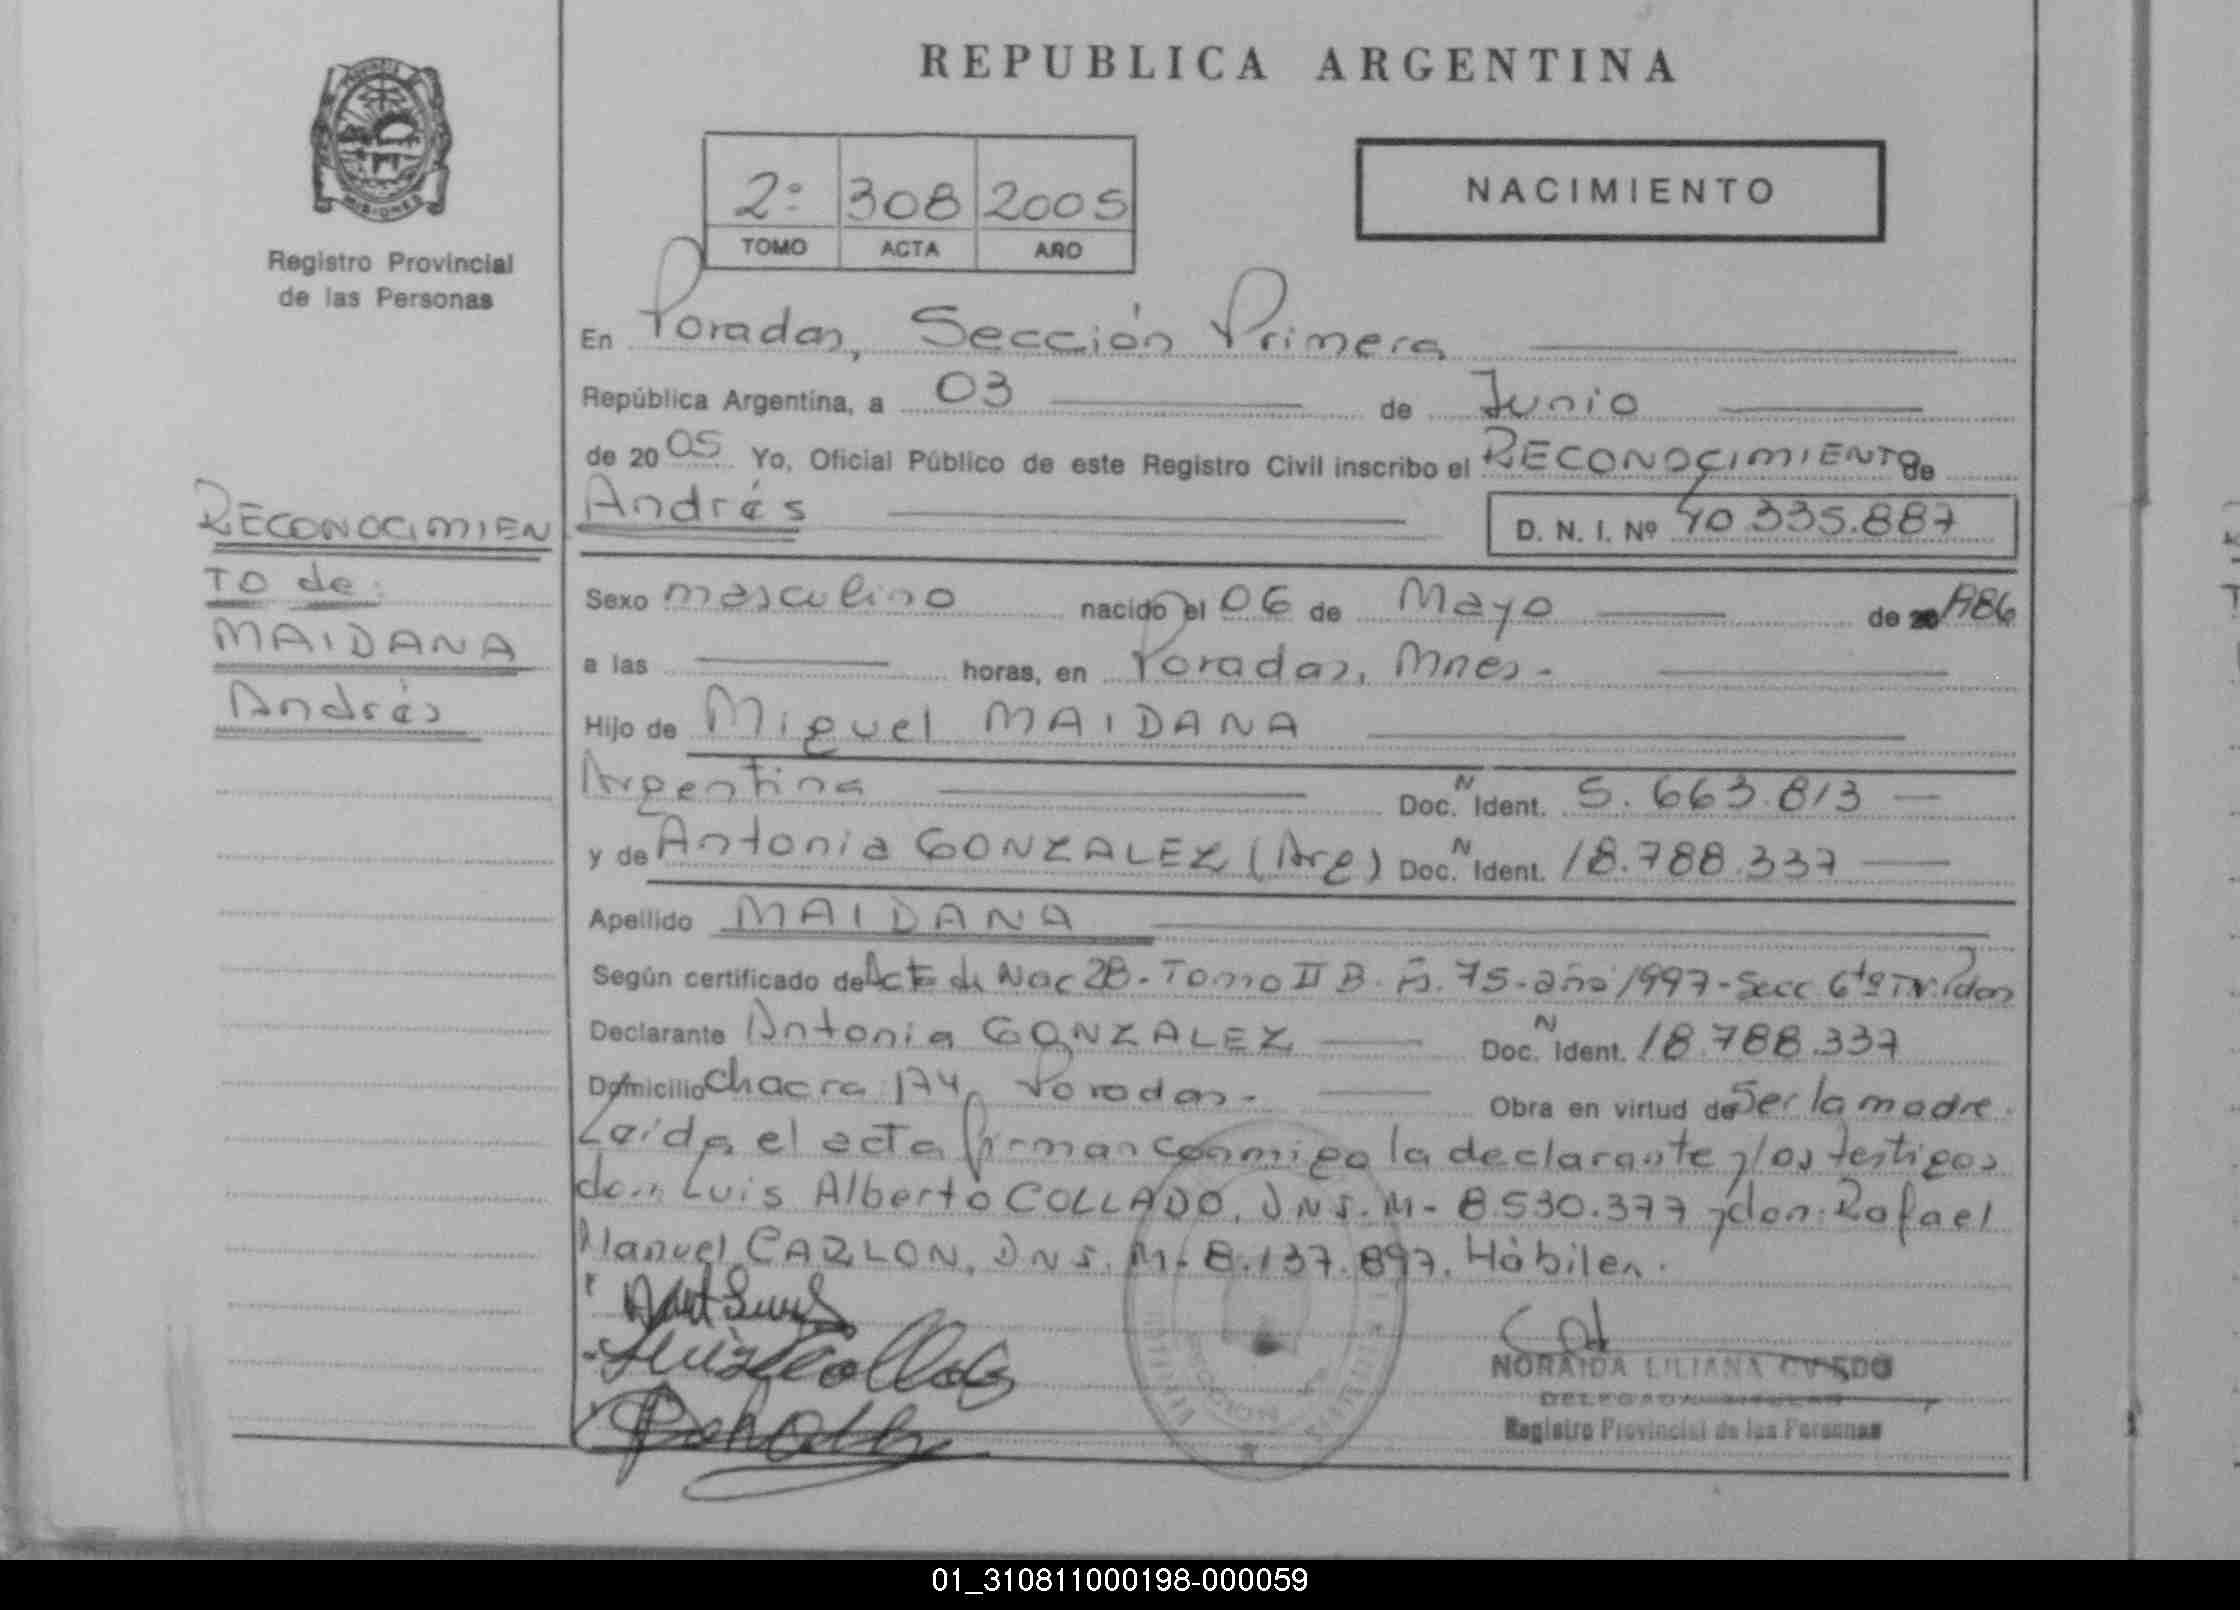 REPUBLICA ARGENTINA
PROVINCIA
MISIONES
Registro Provincial
de las Personas
2º 308 2005
TOMO ACTA AÑO
NACIMIENTO
En Posadas, Sección Primera
República Argentina, a 03 de Junio
de 2005 Yo, Oficial Público de este Registro Civil inscribo el RECONOCIMIENTO de
Andrés D. N. I. Nº 40.335.887
RECONOCIMIEN
TO de:
MAIDANA
Andrés
Sexo masculino nacido el 06 de Mayo de 1986
a las horas, en Posadas, Mnes.
Hijo de Miguel MAIDANA
Argentina Doc. N Ident. 5.663.813
y de Antonia GONZALEZ (Arg) Doc. N Ident. 18.788.337
Apellido MAIDANA
Según certificado de Acta de Nac 28. Tomo II B. Fº. 75. año 1997. Secc 6ta
Declarante Antonia GONZALEZ Doc. N Ident. 18.788.337
Domicilio Chacra 174, Posadas. Obra en virtud de Ser la madre.
Leída el acta firman conmigo la declarante y los testigos
don: Luis Alberto COLLADO, D.N.I. M- 8.530.377 y don: Rafael
Manuel CARLON, D.N.I. M- 8.137.897. Hábiles.
NORAIDA LILIANA OVIEDO
DELEGADA TITULAR
Registro Provincial de las Personas
01_310811000198-000059